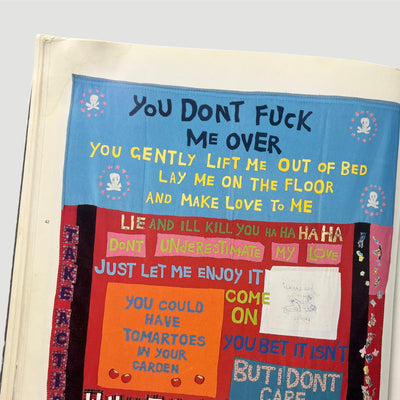 YOU DONT FUCK
ME OVER
YOU GENTLY LIFT ME OUT OF BED
LAY ME ON THE FLOOR
AND MAKE LOVE TO ME
LIE AND ILL KILL YOU HA HA HA HA
DONT UNDERESTIMATE MY LOVE
JUST LET ME ENJOY IT
COME
ON
YOU COULD
HAVE
TOMARTOES
IN YOUR
GARDEN
YOU BET IT ISNT
BUT I DONT
CARE
TAKE ACTI
42